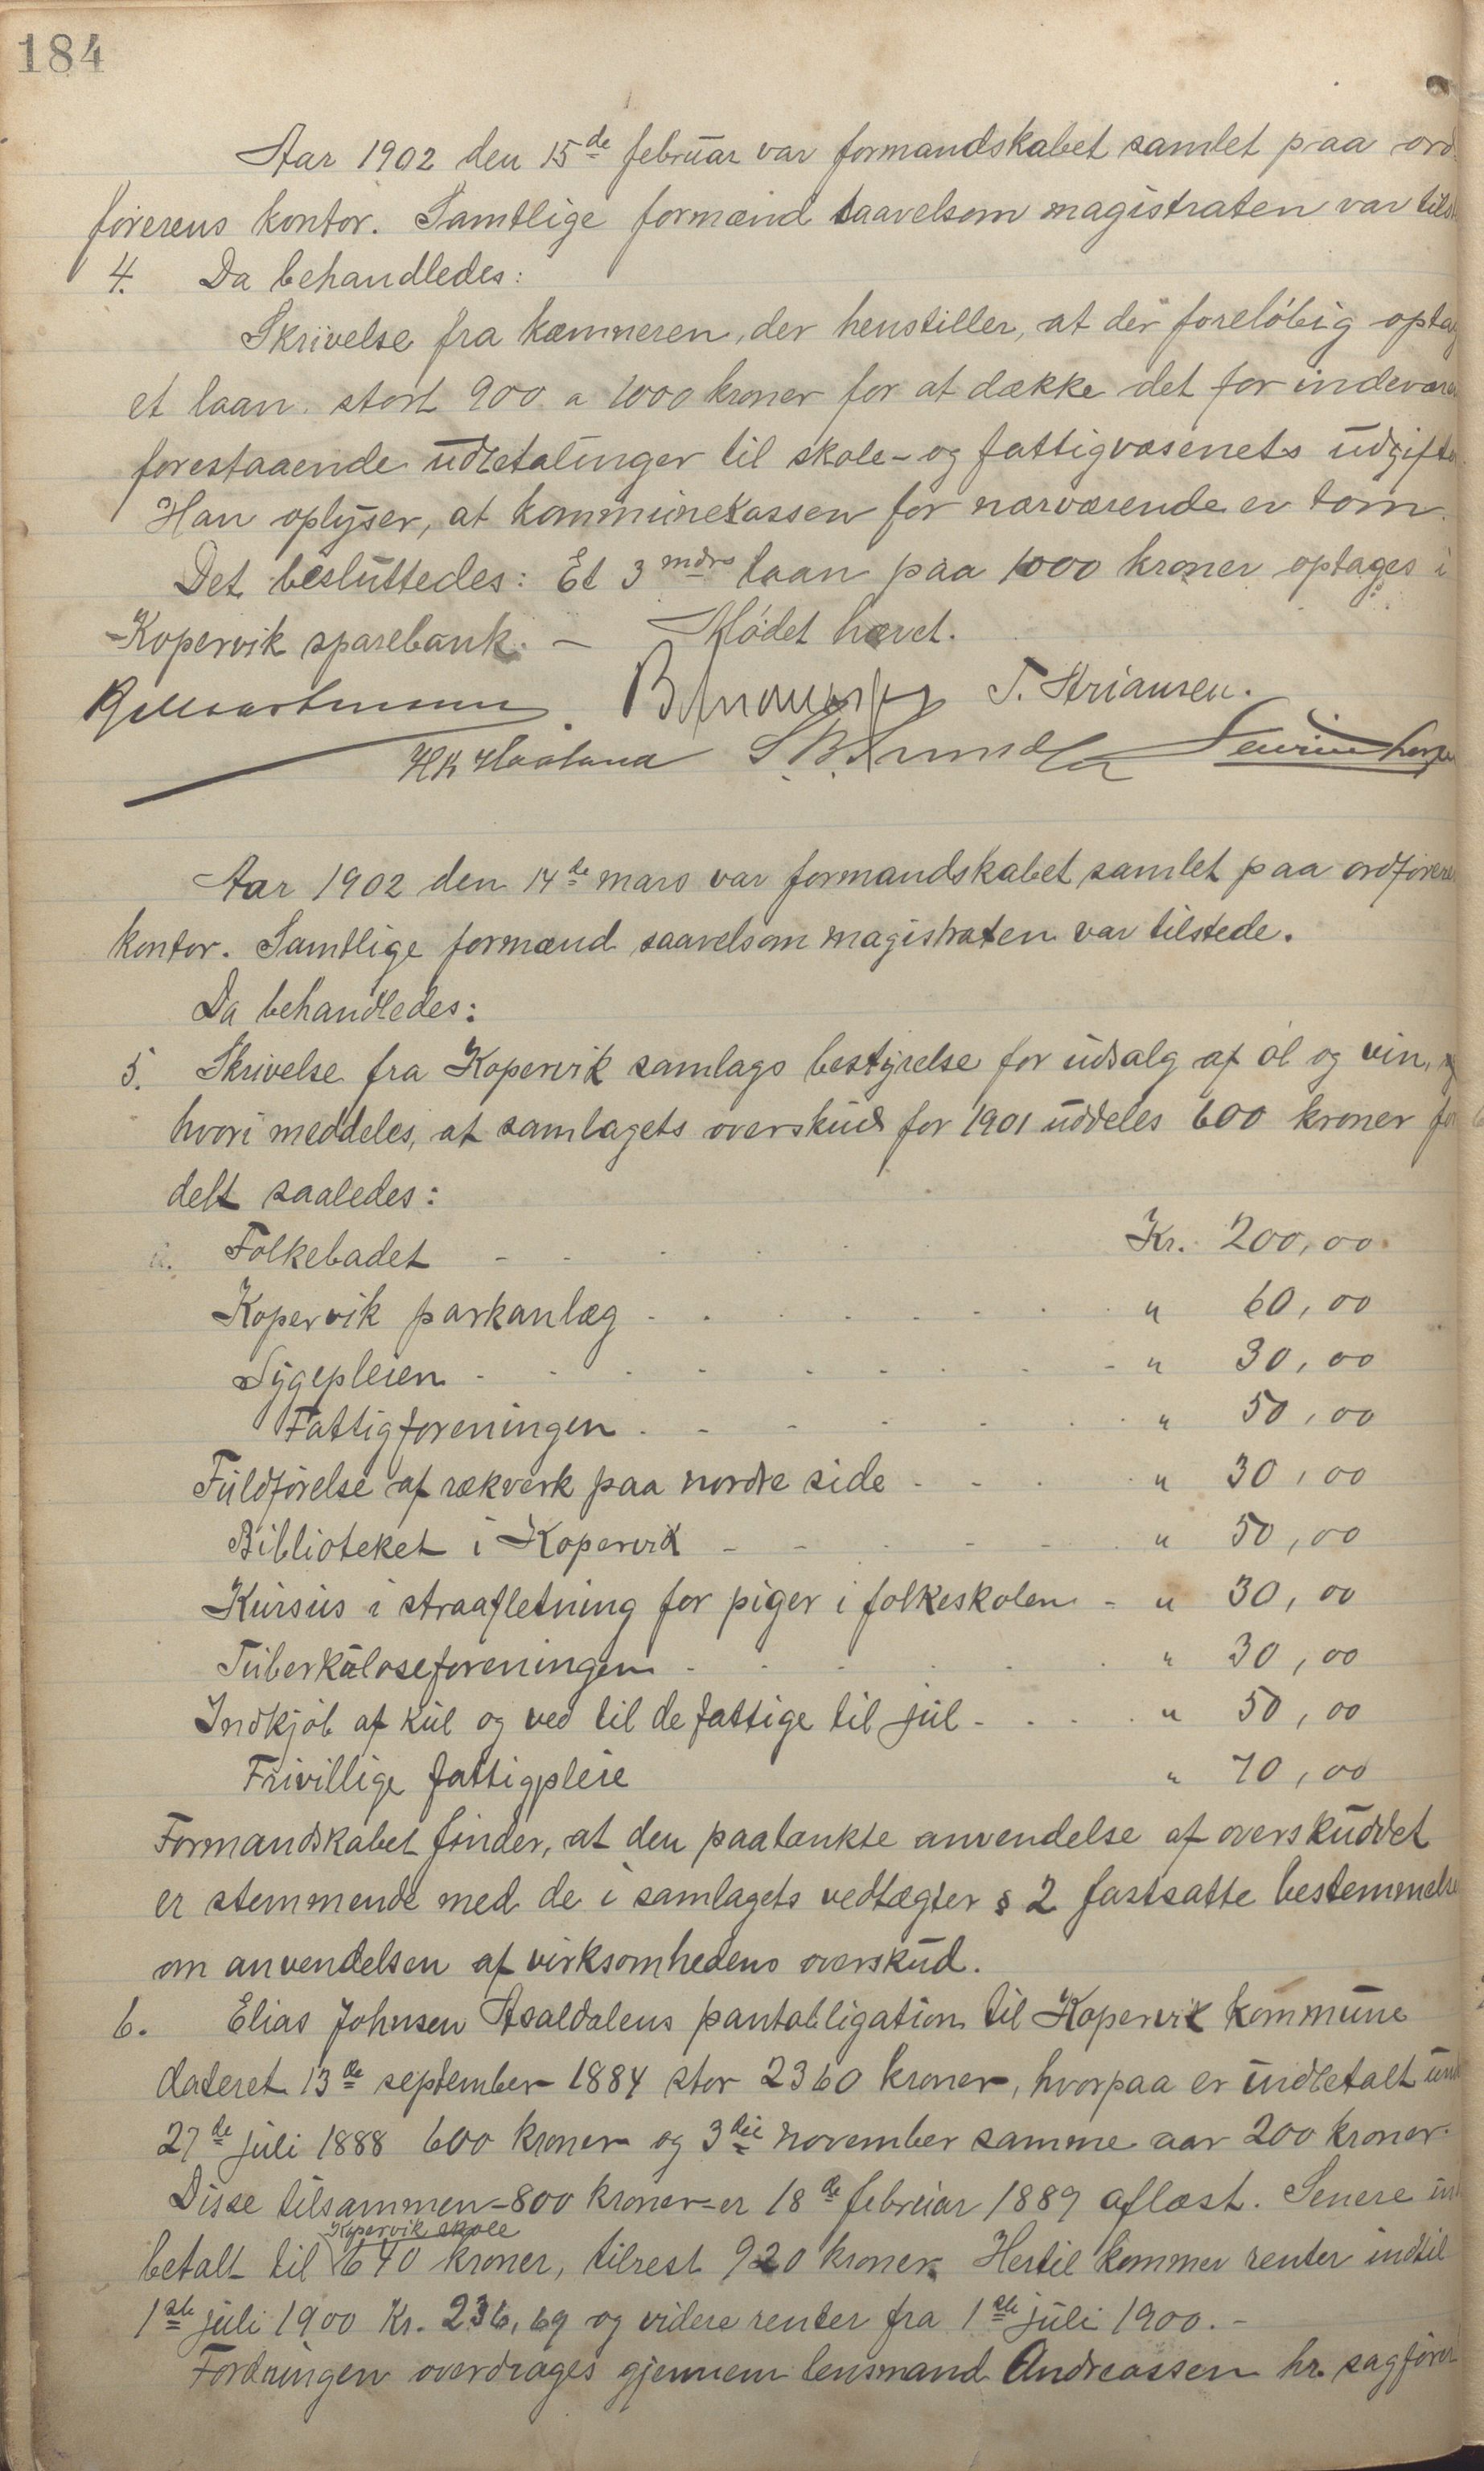 184
Aar 1902 den 15de februar var formandskabet samlet paa ord
förerens kontor. Samtlige formænd saavelsom magistraten var tils
4. Da behandledes:
Skrivelse fra kæmneren, der henstiller, at der foreløbig optag
et laan stort 900 a 1000 kroner for at dække det for indevær
forestaaende udbetalinger til skole- og fattigvæsenets udgifte
Han oplyser, at kommunekassen for nærværende er tom.
Det besluttedes: Et 3 mdrs laan paa 1000 kroner optages i
Kopervik sparebank. — Mødet hævet.
T. Kriansen.
HK Haaland
Aar 1902 den 14de mars var formandskabet samlet paa ordförere
kontor. Samtlige formænd saavelsom magistraten var tilstede.
Da behandledes:
5. Skrivelse fra Kopervik samlags bestyrelse for udsalg af øl og vin,
hvori meddeles, at samlagets overskud for 1901 uddeles 600 kroner for
delt saaledes:
Folkebadet - - Kr. 200,00
Kopervik parkanlæg . . . . . . . " 60,00
Sygepleien - - - - - - - " 30,00
Fattigforeningen . - - - - . . " 50,00
Fuldførelse af rækverk paa nordre side - - - . " 30,00
Biblioteket i Kopervik - - - - - . " 50,00
Kursus i straafletning for piger i folkeskolen - " 30,00
Tuberkuloseforeningen - . . . . . " 30,00
Indkjøb af kul og ved til de fattige til jul - . . . " 50,00
Frivillige fattigpleie " 70,00
Formandskabet finder, at den paatænkte anvendelse af overskuddet
er stemmende med de i samlagets vedtægter § 2 fastsatte bestemmelse
om anvendelsen af virksomhedens overskud.
6. Elias Johnsen Aasaldalens pantobligation til Kopervik kommune
dateret 13de september 1884 stor 2360 kroner, hvorpaa er indbetalt und
27de juli 1888 600 kroner og 3die november samme aar 200 kroner.
Disse tilsammen - 800 kroner - er 18de februar 1889 aflæst. Senere in
Kopervik skole
betalt til 640 kroner, tilrest 920 kroner. Hertil kommer renter indtil
1ste juli 1900 Kr. 236,69 og videre renter fra 1ste juli 1900. -
Fordringen overdrages gjennem lensmand Andreassen hr. sagfører